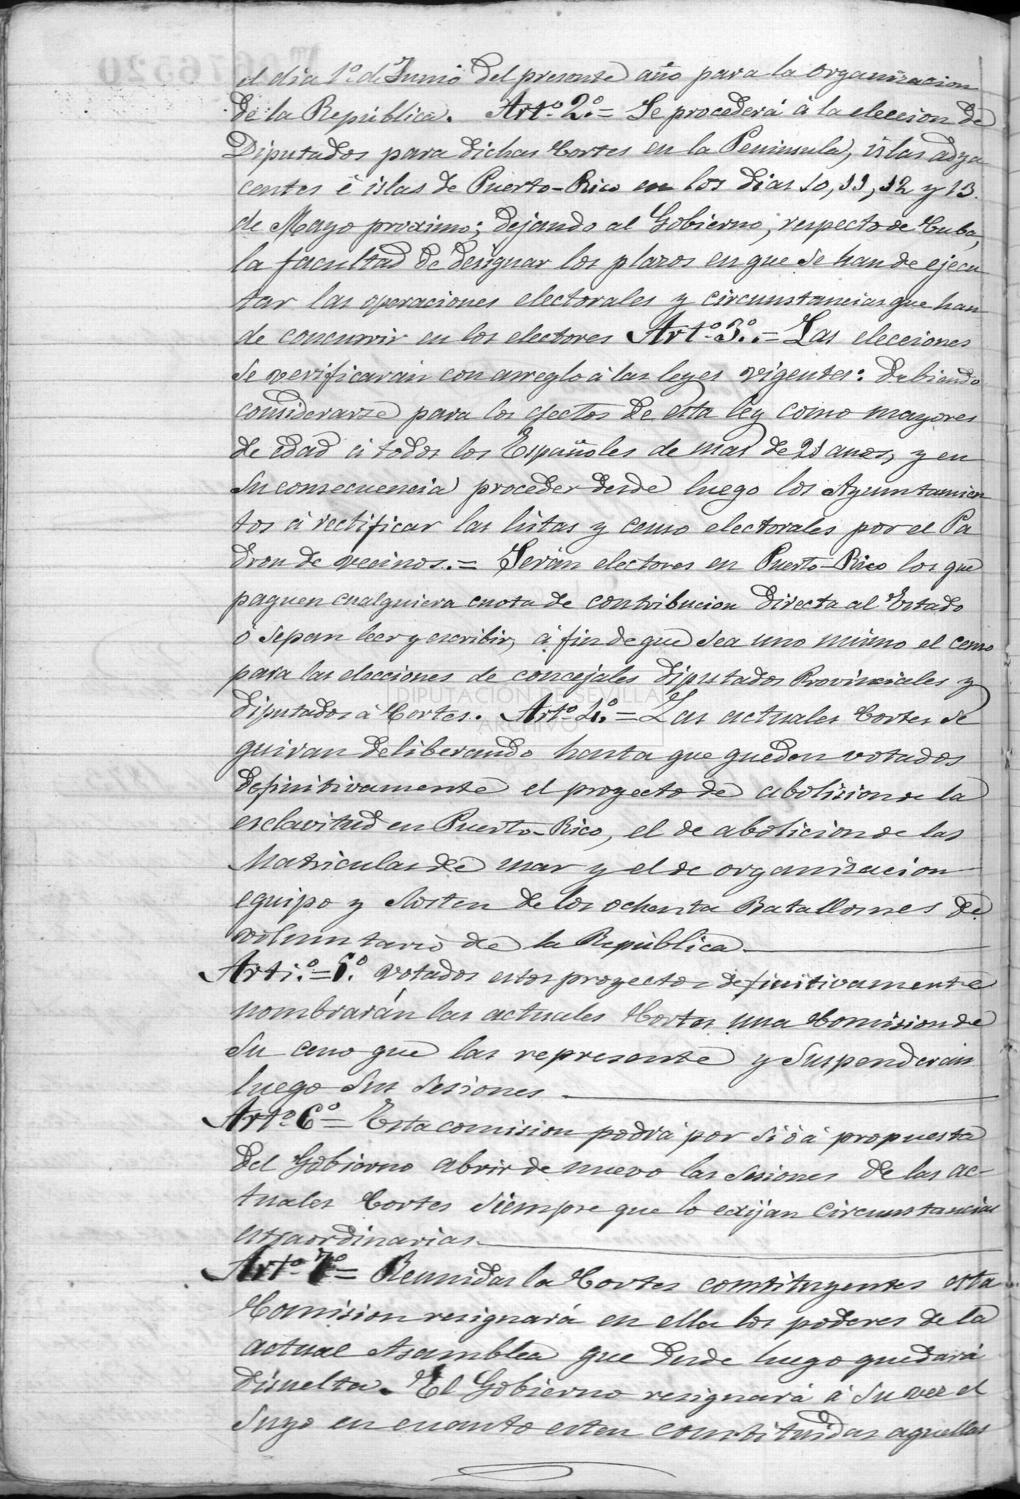 el dia 1º de Junio del presente año para la organizacion
de la República. Artº 2º = Se procederá á la eleccion de
Diputados para dichas Cortes en la Peninsula, islas adya
centes é islas de Puerto-Rico en los dias 10, 11, 12 y 13
de Mayo proximo; dejando al Gobierno, respecto de Cuba,
la facultad de designar los plazos en que se han de ejecu
tar las operaciones electorales y circunstancias que han
de concurrir en los electores Artº 3º. = Las elecciones
se verificaran con arreglo á las leyes vigentes: debiendo
considerarse para los efectos de esta ley como mayores
de edad á todos los Españoles de mas de 21 anos, y en
su consecuencia proceder desde luego los Ayuntamien
tos á rectificar las listas y censo electorales por el Pa
dron de vecinos. = Serán electores en Puerto-Rico los que
paguen cualquiera cuota de contribucion directa al Estado
ó sepan leer y escribir, á fin de que sea uno mismo el censo
para las elecciones de concejales Diputados Provinciales y
Diputados á Cortes. Artº 4º = Las actuales Cortes se
guiran deliberando hasta que queden votados
definitivamente el proyecto de abolision de la
esclavitud en Puerto-Rico, el de abolicion de las
Matriculas de mar y el de organizacion
equipo y sosten de los ochenta Batallones de
voluntario de la República
Arti.º = 5º. votados estos proyectos definitivamente
nombrarán las actuales Cortes una Comision de
su ceno que las represente y suspenderan
luego sus sesiones
Artº 6º = Esta comision podrá por sí ó á propuesta
del Gobierno abrir de nuevo las sesiones de las ac-
tuales Cortes siempre que lo exijan circunstancias
estraordinarias.
Artº 7º = Reunidas la Cortes constituyentes esta
Comision resignará en ella los poderes de la
actual Asamblea que desde luego quedará
disuelta. El Gobierno resignará á su vez el
suyo en cuanto esten constituidas aquellas
DIPUTACIÓN DE SEVILLA
ARCHIVO